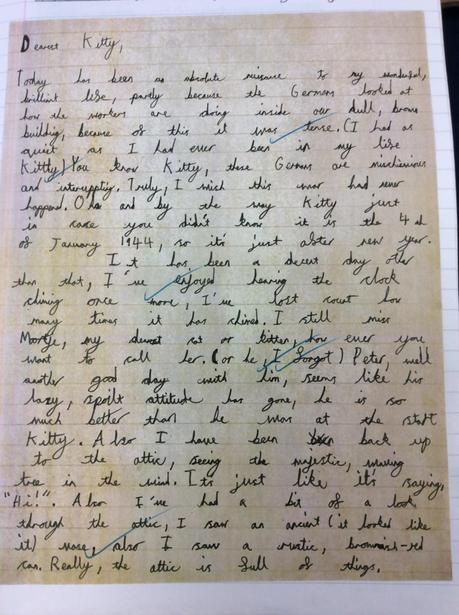 Dearest Kitty,
Today has been an absolute nuisance to my wonderful,
brilliant life, partly because the Germans looked at
how the workers are doing inside our dull, brown
building, because of this it was tense. (I had as
quiet as I had ever been in my life
Kitty) You know Kitty, these Germans are mischievious
and interrupting. Truly, I wish this war had never
happend. Oh and by the way Kitty just
in case you didn't know it is the 4th
of January 1944, so it's just after new year.
It has been a decent day other
than that, I've enjoyed hearing the clock
chiming once more, I've lost count how
many times it has chimed. I still miss
Moortje, my dearest cat or kitten, how ever you
want to call her. (or he, I forgot) Peter, well
another good day with him, seems like his
lazy, spoilt attitude has gone, he is so
much better than he was at the start
Kitty. Also I have been back up
to the attic, seeing the majestic, waving
tree in the wind. It's just like it's saying,
"Hi!". Also I've had a bit of a look
through the attic, I saw an ancient (it looked like
it) vase, also I saw a rustic, brownish-red
can. Really, the attic is full of things.